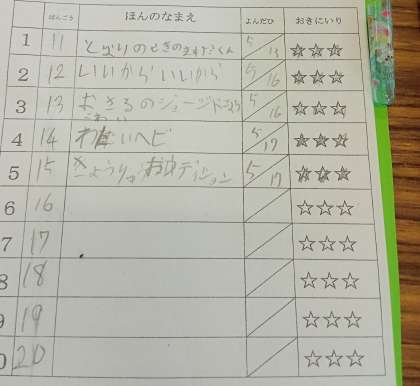 ばんごう ほんのなまえ よんだひ おきにいり
1 11 となりのせきのますだくん 5/13 ☆☆☆
2 12 いいからいいから 5/16 ☆☆☆
3 13 おさるのジョージ 5/16 ☆☆☆
4 14 ヘビ 5/17 ☆☆☆
5 15 きょうりゅう 5/17 ☆☆☆
6 16 ☆☆☆
7 17 ☆☆☆
8 18 ☆☆☆
9 19 ☆☆☆
0 20 ☆☆☆